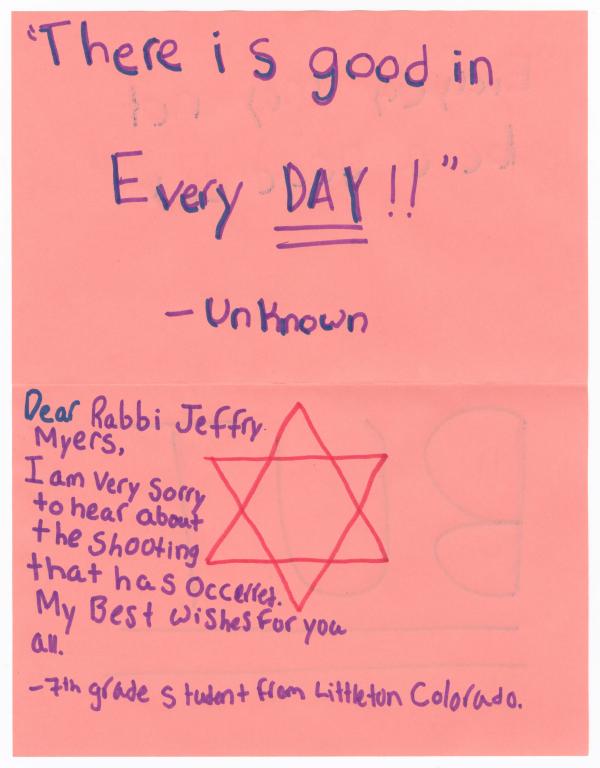 "There is good in
Every DAY!!"
- Unknown
Dear Rabbi Jeffry
Myers,
I am very sorry
to hear about
the shooting
that has Occerred.
My Best wishes for you
all.
- 7th grade student from Littleton Colorado.